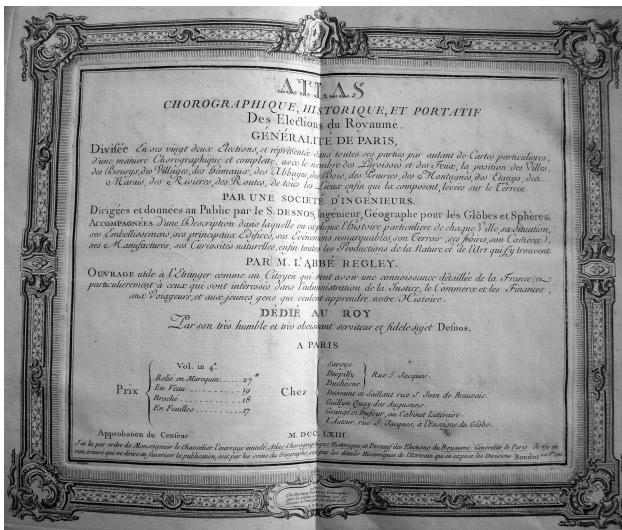 ATLAS
CHOROGRAPHIQUE, HISTORIQUE, ET PORTATIF
Des Elections du Royaume.
GÉNÉRALITÉ DE PARIS,
Divisée En ses vingt deux Elections, et représentée dans toutes ses parties par autant de Cartes particulieres,
d'une maniere Chorographique et complette, avec le nombre des Paroisses et des Feux, la position des Villes,
des Bourgs, des Villages, des Hameaux, des Abbayes, des Bois, des Prairies, des Montagnes, des Etangs, des
Marais, des Rivieres, des Routes, de tous les Lieux enfin qui la composent, levées sur le Terrein
PAR UNE SOCIÉTÉ D'INGENIEURS.
Dirigées et données au Public par le S. DESNOS, Ingenieur, Geographe pour les Glôbes et Spheres.
ACCOMPAGNÉES d'une Description dans laquelle on explique l'histoire particuliere de chaque Ville, sa Situation,
ses Embellissemens, ses principaux Edifices, ses Evénemens remarquables, son Terroir, ses foires, son Comerce,
ses Manufactures, ses Curiosités naturelles, enfin toutes les Productions de la Nature et de l'Art qui s'y trouvent.
PAR M. L'ABBÉ REGLEY.
OUVRAGE utile à l'Etranger comme au Citoyen qui veut avoir une connoissance détaillée de la France, et
particulierement à ceux qui sont interessés dans l'administration de la Justice, le Commerce et les Finances,
aux Voiageurs, et aux jeunes gens qui veulent apprendre notre Histoire.
DÉDIÉ AU ROY
Par son très humble et très obeissant serviteur et fidele sujet Desnos.
A PARIS
Prix
Vol. in 4°
Relié en Maroquin ...... 27
En Veau ...... 19
Broché ...... 18
En Feuilles ...... 17
Chez
Savoye
Despilly
Duchesne
Rue S. Jacques.
Dessaint et Saillant rue S. Jean de Beauvais.
Guillyn Quay des Augustins.
Grangé et Dufour, au Cabinet Littéraire.
L'Auteur, rue S. Jacques, à l'Enseigne du Globe.
Approbation du Censeur
M. DCC. LXIII.
J'ai lu par ordre de Monseigneur le Chancelier l'ouvrage intitulé, Atlas Chorographique, Historique et Portatif des Elections du Royaume. Généralité de Paris. Je n'y ai
rien trouvé qui ne doive en favoriser la publication, soit par les soins du Géographe, soit par les détails Historiques de l'Ecrivain qui en expose les Divisions. Boudot